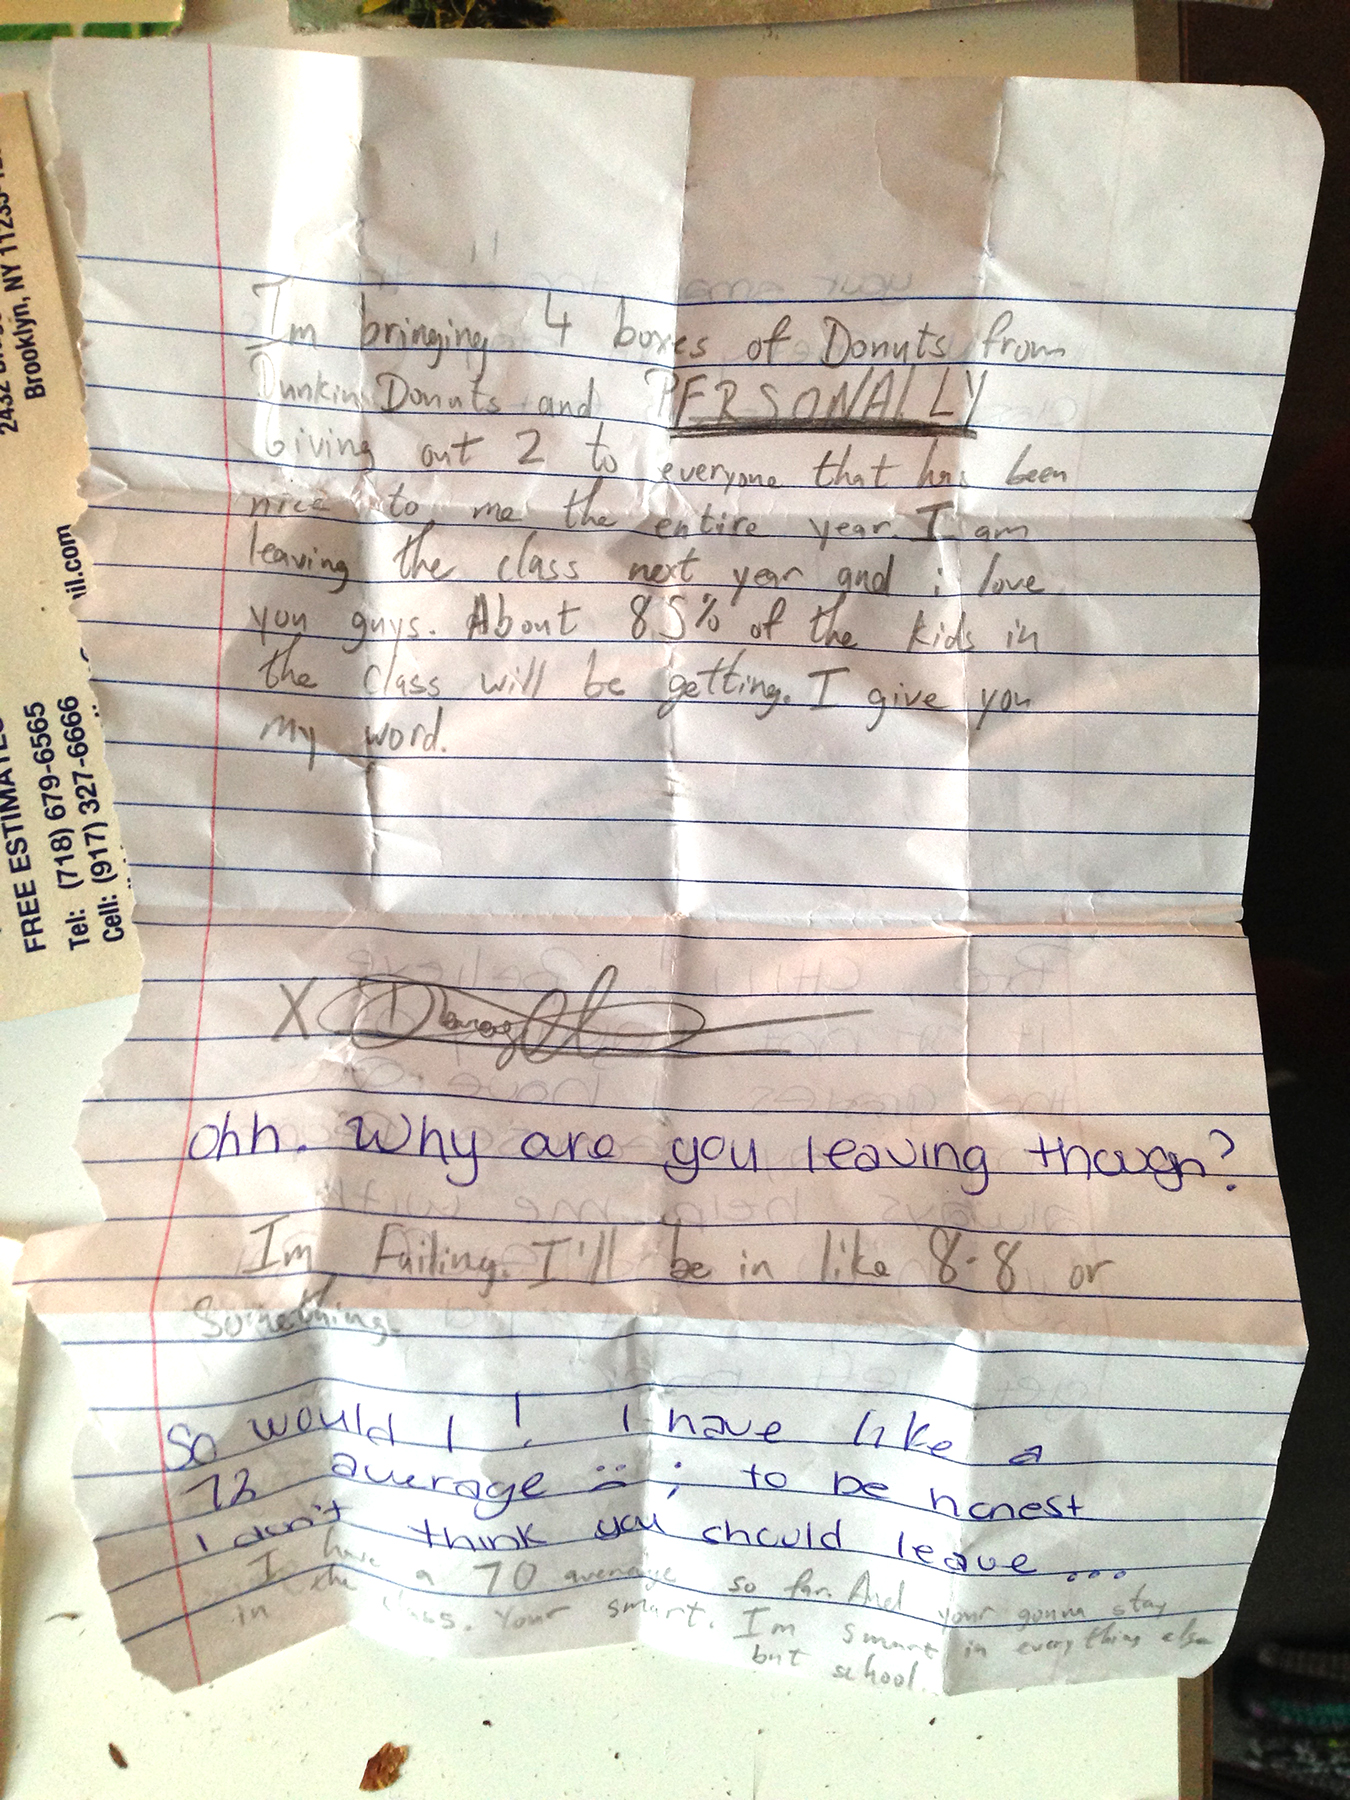 Im bringing 4 boxes of Donuts from
Dunkin Donuts and PERSONALLY
Giving out 2 to everyone that has been
nice to me the entire year. I am
leaving the class next year and i love
you guys. About 85% of the kids in
the class will be getting. I give you
my word.
X
ohh. Why are you leaving though?
Im Failing. I'll be in like 8-8 or
Something.
So would I! I have like a
72 average :( ; to be honest
I don't think you should leave...
I have a 70 average so far. And your gonna stay
in the class. Your smart. Im smart in everything else
but school.
Brooklyn, NY
FREE ESTIMATES
Tel: (718) 679-6565
Cell: (917) 327-6666